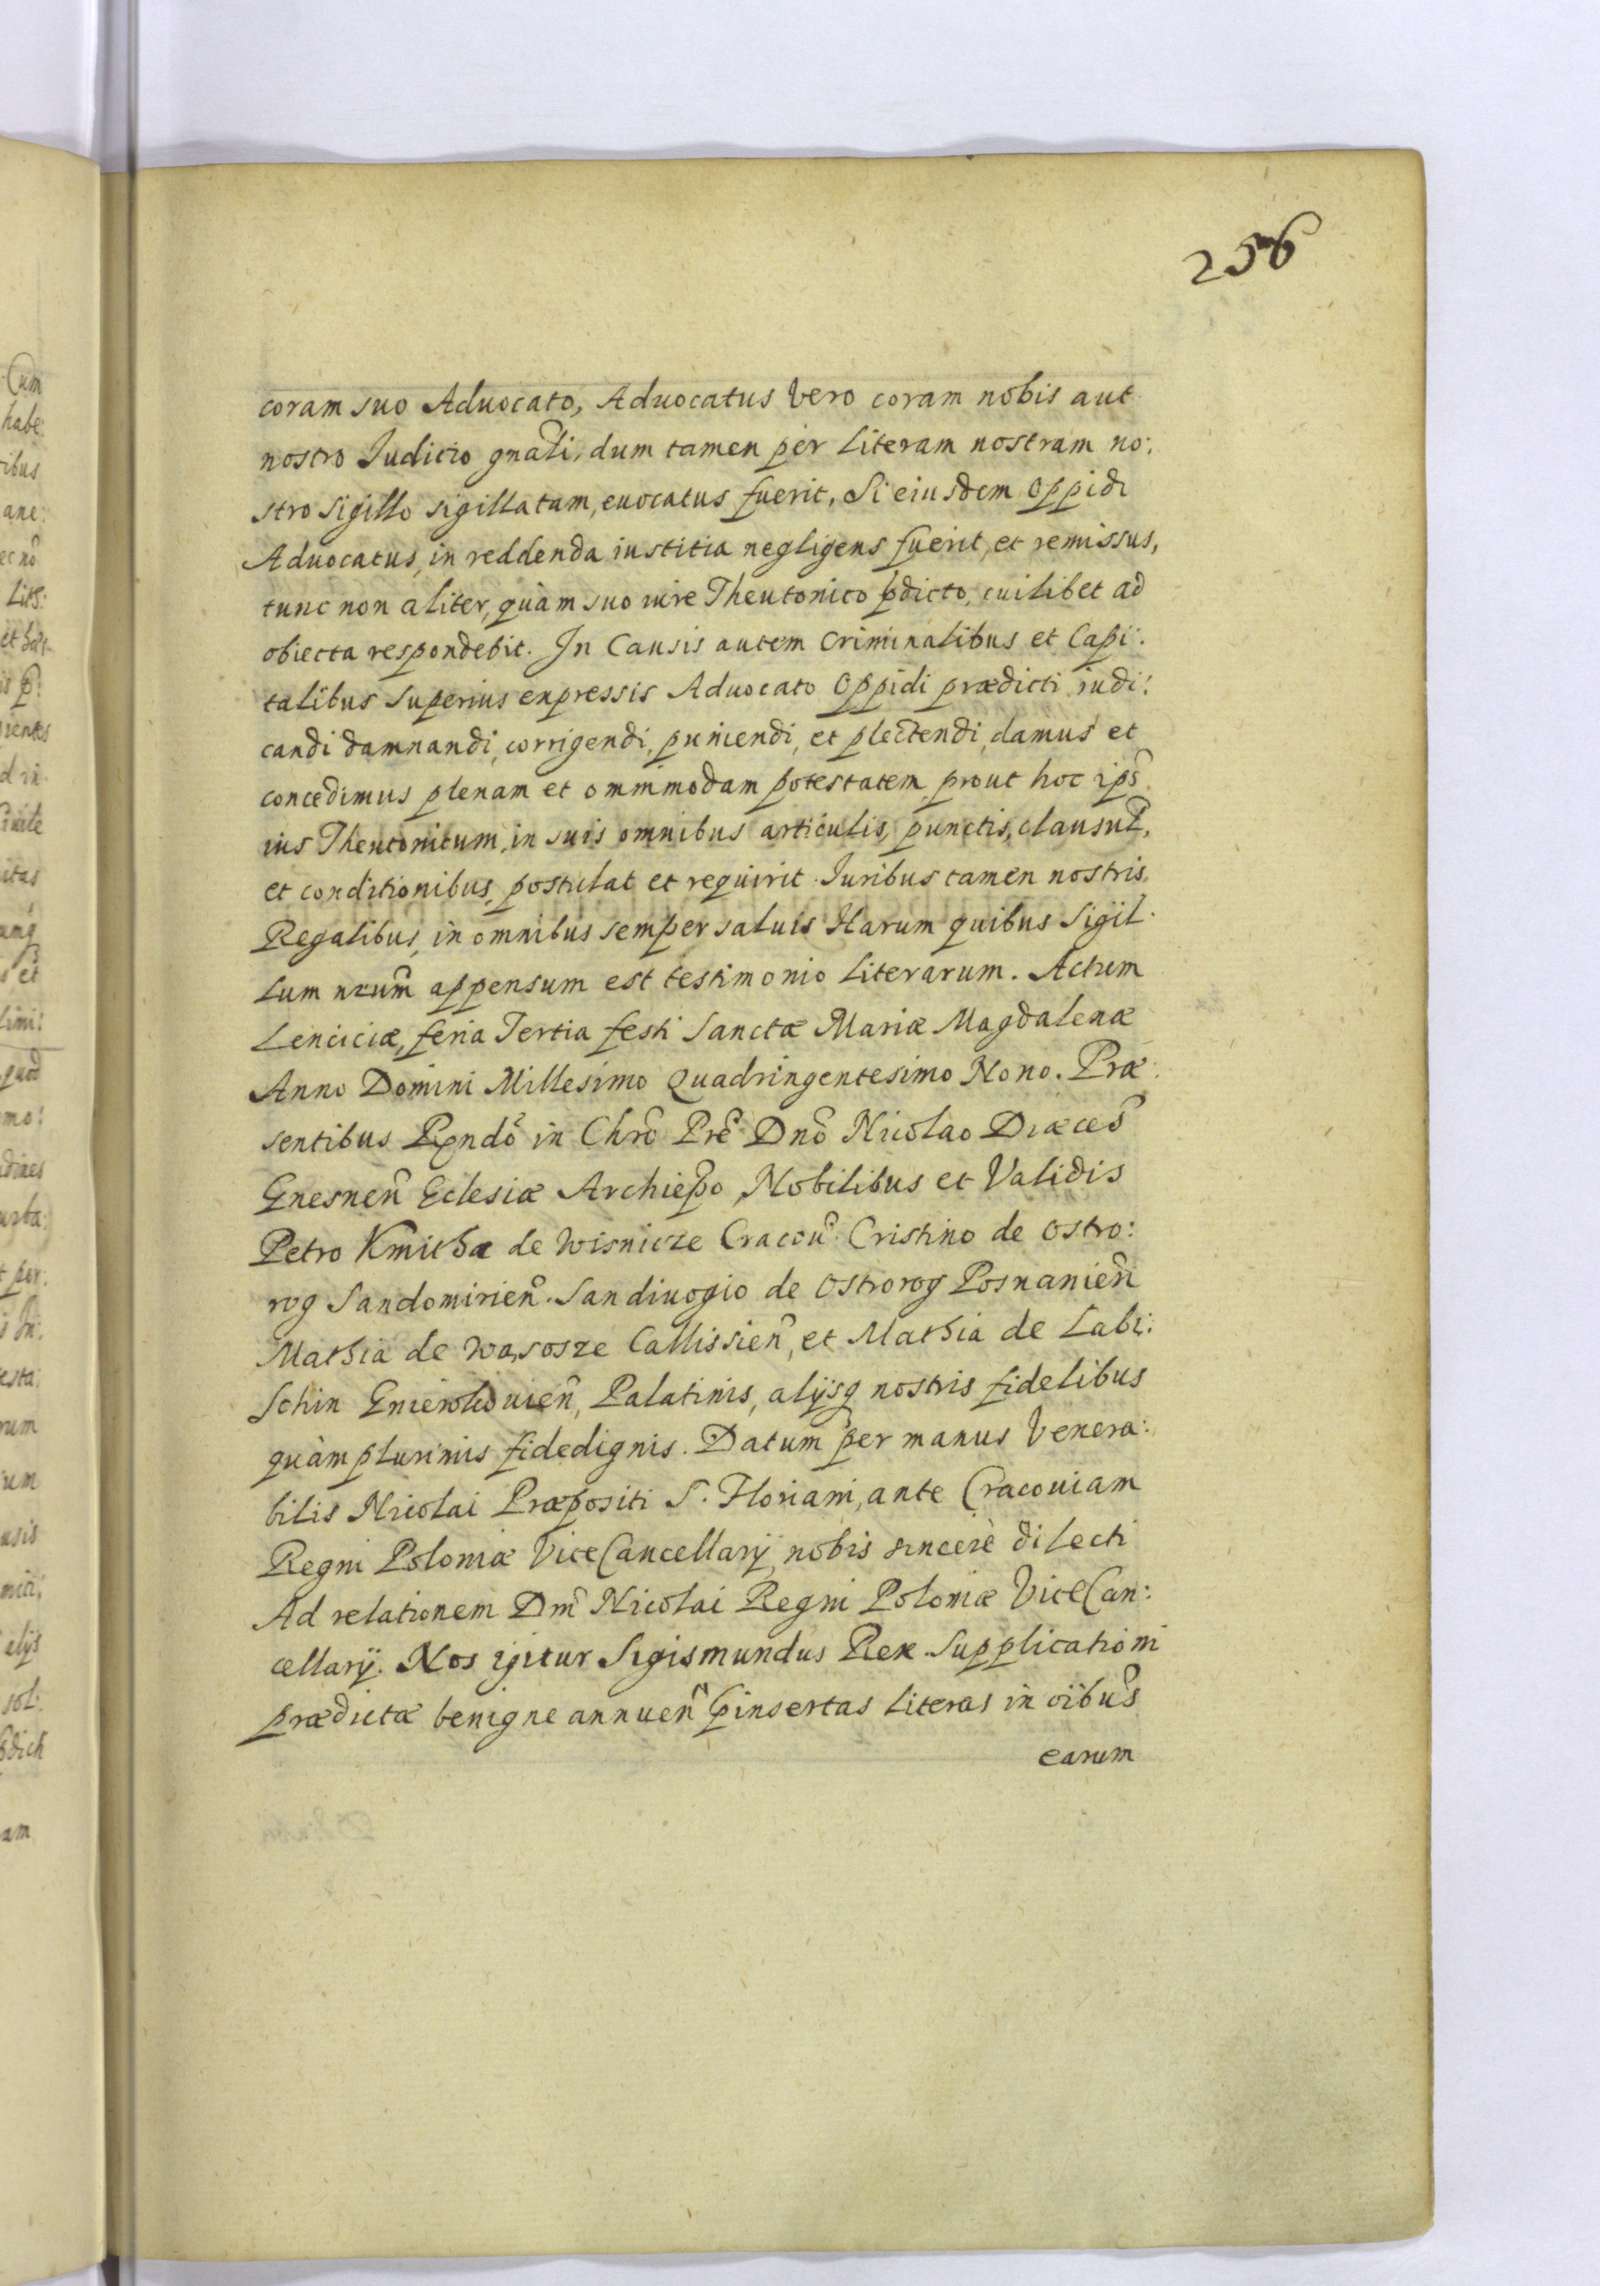 256
coram suo Aduocato, Aduocatus Vero coram nobis aut
nostro Iudicio gnãli, dum tamen per Literam nostram no:
stro Sigillo sigillatam, euocatus fuerit, Si eiusdem Oppidi
Aduocatus, in reddenda iustitia negligens fuerit, et remissus,
tunc non aliter, quàm suo iure Theutonico p̃dicto, cuilibet ad
obiecta respondebit. In Causis autem Criminalibus et Capi:
talibus Superius expressis Aduocato Oppidi prædicti iudi:
candi damnandi, corrigendi, puniendi, et plectendi, damus et
concedimus plenam et omnimodam potestatem, prout hoc ips̃
ius Theutonicum, in suis omnibus articulis, punctis, clausul̃,
et conditionibus, postulat et requirit. Iuribus tamen nostris
Regalibus, in omnibus semper saluis Harum quibus Sigil
lum nrum̃ appensum est testimonio Literarum. Actum
Lenciciæ, feria Tertia festi Sanctæ Mariæ Magdalenæ
Anno Domini Millesimo Quadringentesimo Nono. Præ:
sentibus Rndõ in Chrõ Prẽ Dnõ Nicolao Diæces̃
Gnesneñ Eclesiæ Archiep̃o, Nobilibus et Validis
Petro Kmithæ de Wisnicze Cracoũ. Cristino de Ostro:
rog Sandomirieñ. Sandiuogio de Ostrorog Posnanieñ
Mathia de Wasosze Callissieñ, et Mathia de Labi:
schin Gniewkouieñ, Palatinis, alÿsq nostris fidelibus
quàm plurimis fidedignis. Datum per manus Venera:
bilis Nicolai Præpositi S. Floriani, ante Cracouiam
Regni Poloniæ ViceCancellarÿ, nobis sincerè dilecti
Ad relationem Dnĩ Nicolai Regni Poloniæ ViceCan:
cellarÿ. Nos igitur Sigismundus Rex Supplicationi
prædictæ benigne annueñ p̃insertas Literas in oĩbus
earum